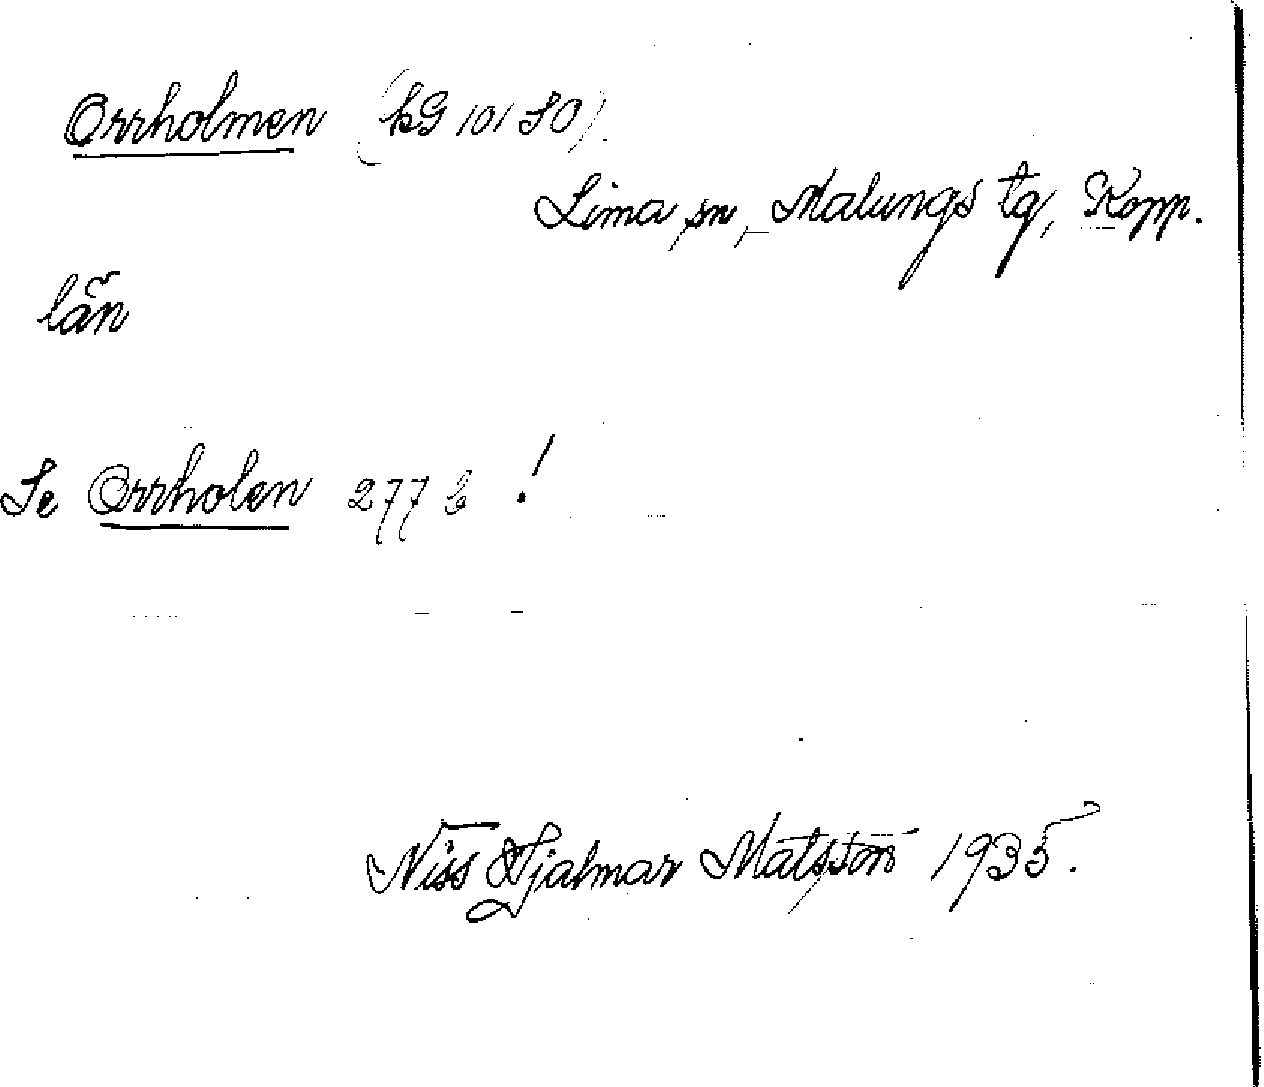 Orrholmen (kG 101 SO).
Lima sn, Malungs tg, Kopp.
län
Se Orrholen 277 b !
Niss Hjalmar Matsson 1935.